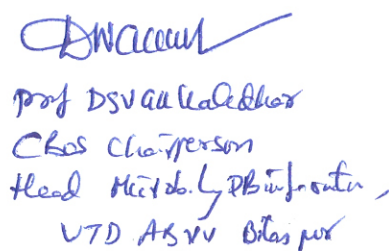 Prof DSVGK Kaladhar
CBoS Chairperson
Head Microbiology & Bioinformatics,
UTD ABVV Bilaspur